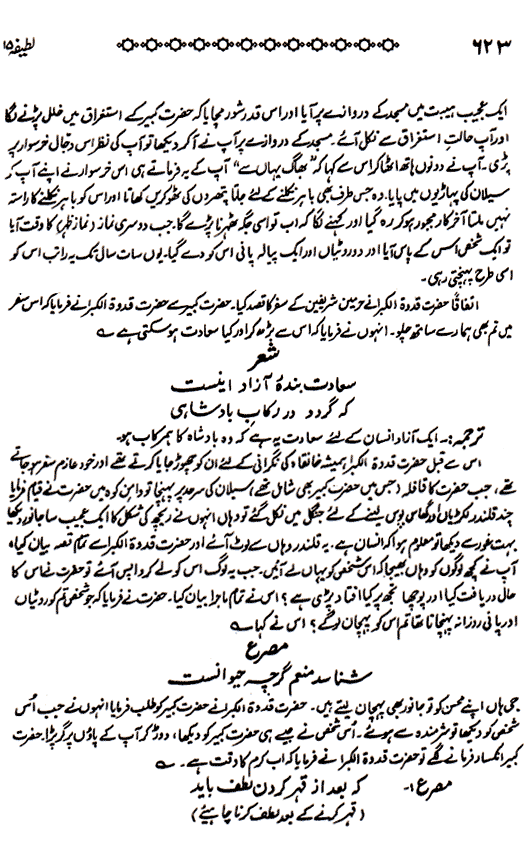 ۶۲۳
لطیفہ ۱۵
ایک عجیب ہیبت میں مسجد کے دروازے پر آیا اور اس قدر شور مچایا کہ حضرت کبیر کے استغراق میں خلل پڑنے لگا
اور آپ حالتِ استغراق سے نکل آئے۔ مسجد کے دروازے پر آپ نے آکر دیکھا تو آپ کی نظر اس دجال خر سوار پر
پڑی۔ آپ نے دونوں ہاتھ اٹھا کر اس سے کہا کہ "بھاگ یہاں سے" آپ کے یہ فرماتے ہی اس خر سوار نے اپنے آپ کو
سیلان کی پہاڑیوں میں پایا۔ وہ جس طرف بھی باہر نکلنے کے لئے چلتا پتھروں کی ٹھوکریں کھاتا اور اس کو باہر نکلنے کا راستہ
نہیں ملتا آخر کار مجبور ہو کر رہ گیا اور کہنے لگا کہ اب تو اسی جگہ ٹھہرنا پڑے گا۔ جب دوسری نماز (نمازِ ظہر) کا وقت آیا
تو ایک شخص اس کے پاس آیا اور دو روٹیاں اور ایک پیالہ پانی اس کو دے گیا۔ یوں سات سال تک یہ راتب اس کو
اسی طرح پہنچتی رہی۔
اتفاقاً حضرت قدوۃ الکبرا نے حرمین شریفین کے سفر کا قصد کیا۔ حضرت کبیر سے حضرت قدوۃ الکبرا نے فرمایا کہ اس سفر
میں تم بھی ہمارے ساتھ چلو۔ انہوں نے فرمایا کہ اس سے بڑھ کر اور کیا سعادت ہو سکتی ہے ؎
شعر
سعادت بندۂ آزاد اینست
کہ گردو در رکاب بادشاہی
ترجمہ:۔ ایک آزاد انسان کے لئے سعادت یہ ہے کہ وہ بادشاہ کا ہمرکاب ہو۔
اس سے قبل حضرت قدوۃ الکبرا ہمیشہ خانقاہ کی نگرانی کے لئے ان کو چھوڑ جایا کرتے تھے اور خود عازم سفر ہو جاتے
تھے، جب حضرت کا قافلہ (جس میں حضرت کبیر بھی شامل تھے) سیلان کی سرحد پر پہنچا تو دامن کوہ میں حضرت نے قیام فرمایا
چند قلندر لکڑیاں اور گھاس پوس لینے کے لئے جنگل میں نکل گئے تو وہاں انہوں نے ریچھ کی شکل کا ایک عجیب سا جانور دیکھا
بہت غور سے دیکھا تو معلوم ہوا کہ انسان ہے۔ یہ قلندر وہاں سے لوٹ آئے اور حضرت قدوۃ الکبرا سے تمام قصہ بیان کیا۔
آپ نے کچھ لوگوں کو وہاں بھیجا کہ اس شخص کو یہاں لے آئیں۔ جب یہ لوگ اس کو لے کر واپس آئے تو حضرت نے اس کا
حال دریافت کیا اور پوچھا تجھ پر کیا افتاد پڑی ہے؟ اس نے تمام ماجرا بیان کیا۔ حضرت نے فرمایا کہ جو شخص تم کو روٹیاں
اور پانی روزانہ پہنچاتا تھا تم اس کو پہچان لو گے؟ اس نے کہا ؎
مصرع
شناسد منعم گرچہ حیوانست
جی ہاں اپنے محسن کو تو جانور بھی پہچان لیتے ہیں۔ حضرت قدوۃ الکبرا نے حضرت کبیر کو طلب فرمایا انہوں نے جب اُس
شخص کو دیکھا تو شرمندہ سے ہوئے۔ اُس شخص نے جیسے ہی حضرت کبیر کو دیکھا، دوڑ کر آپ کے پاؤں پر گر پڑا۔ حضرت
کبیر انکسار فرمانے لگے تو حضرت قدوۃ الکبرا نے فرمایا کہ اب کرم کا وقت ہے۔ ؎
مصرع :۔ کہ بعد از قہر کردن لطف باید
(قہر کرنے کے بعد لطف کرنا چاہیئے)